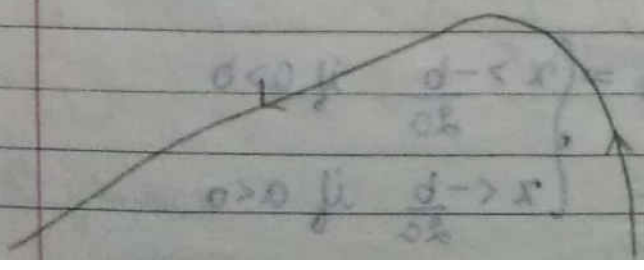 = { x > -b/2a if a > 0
x < -b/2a if a < 0